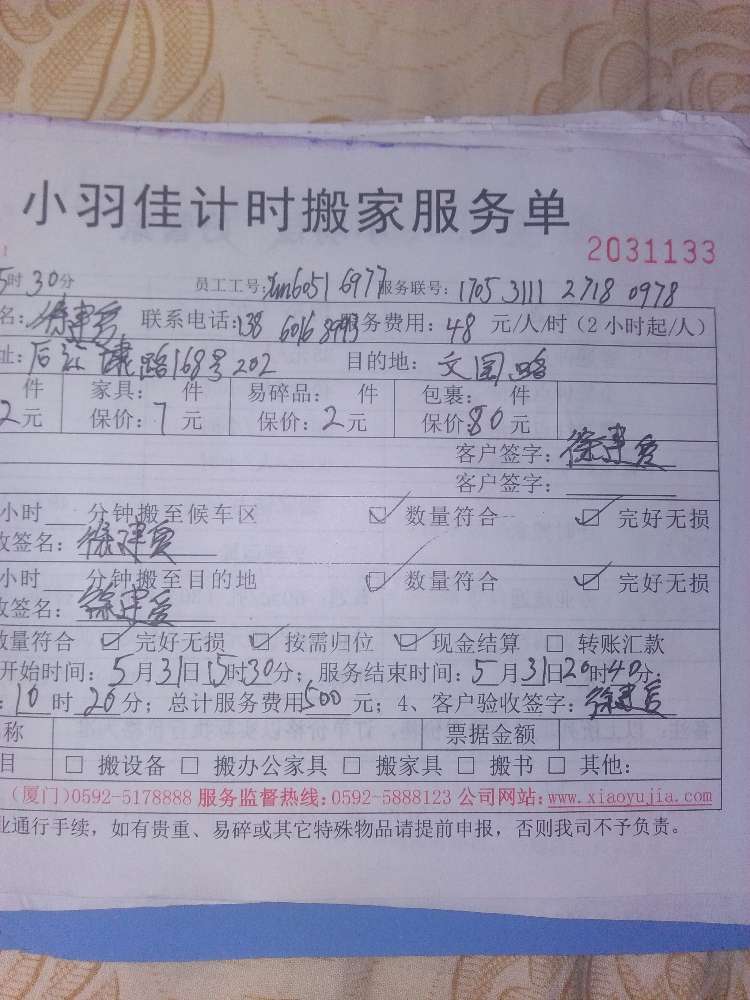 小羽佳计时搬家服务单
2031133
5时30分 员工工号:xm6051 6977服务联号:1705 3111 2718 0978
名: 联系电话:138 6016 服务费用:48元/人/时(2小时起/人)
址: 路168号202 目的地:文园路
件 家具: 件 易碎品: 件 包裹: 件
2元 保价:7元 保价:2元 保价:80元
客户签字:
客户签字:
小时 分钟搬至候车区 ☑ 数量符合 ☑ 完好无损
收签名:
小时 分钟搬至目的地 ☑ 数量符合 ☑ 完好无损
收签名:
数量符合 ☑ 完好无损 ☑ 按需归位 ☑ 现金结算 □ 转账汇款
开始时间:5月31日15时30分;服务结束时间:5月31日20时40分;
:10时20分;总计服务费用500元;4、客户验收签字:
称 票据金额
目 □ 搬设备 □ 搬办公家具 □ 搬家具 □ 搬书 □ 其他:
(厦门)0592-5178888 服务监督热线:0592-5888123 公司网站:www.xiaoyujia.com
业通行手续,如有贵重、易碎或其它特殊物品请提前申报,否则我司不予负责。